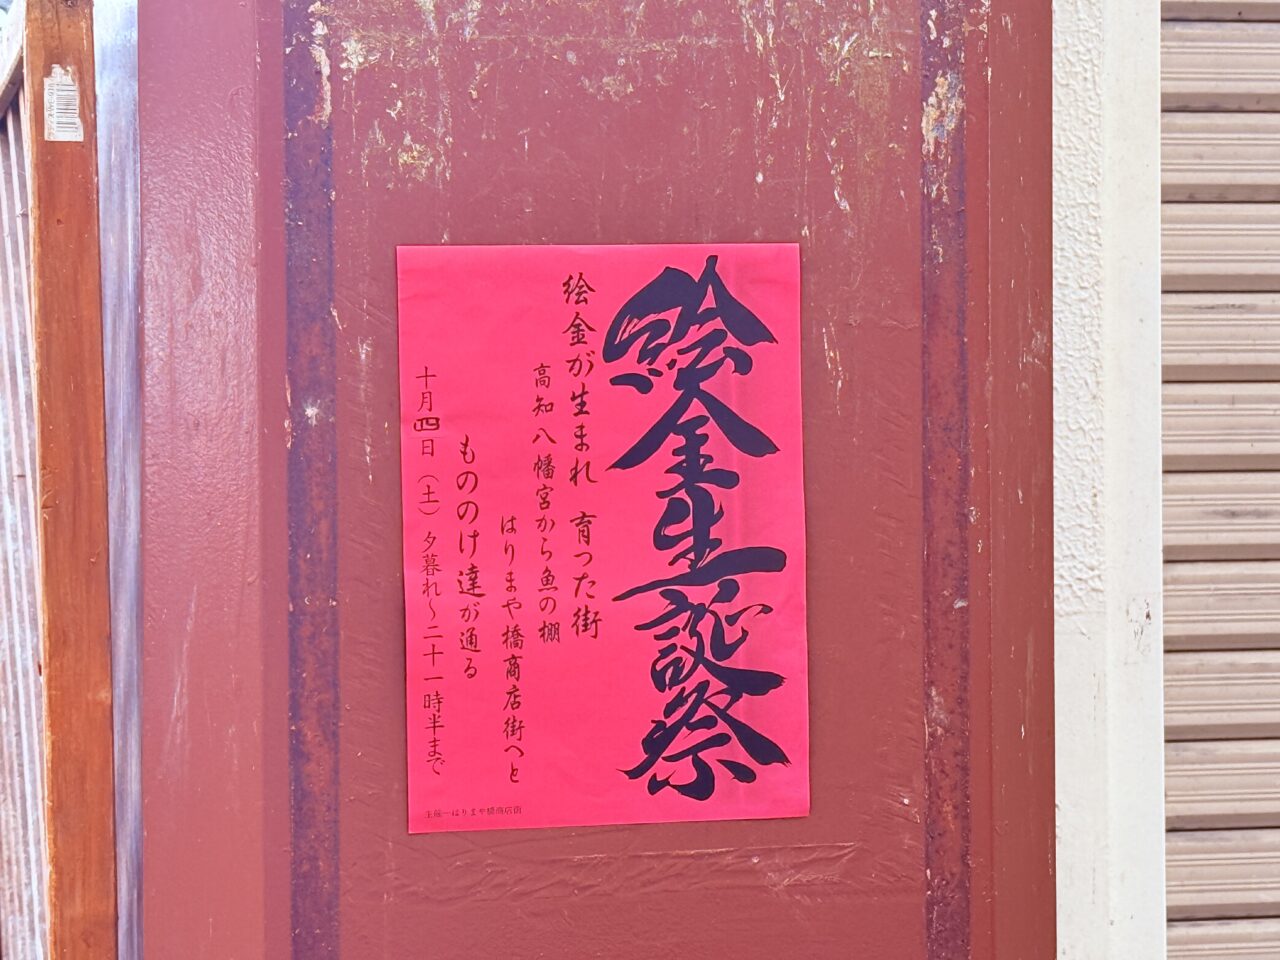 絵金生誕祭
絵金が生まれ 育った街
高知八幡宮から魚の棚
はりまや橋商店街へと
もののけ達が通る
十月四日(土)夕暮れ～二十一時半まで
主催―はりまや橋商店街